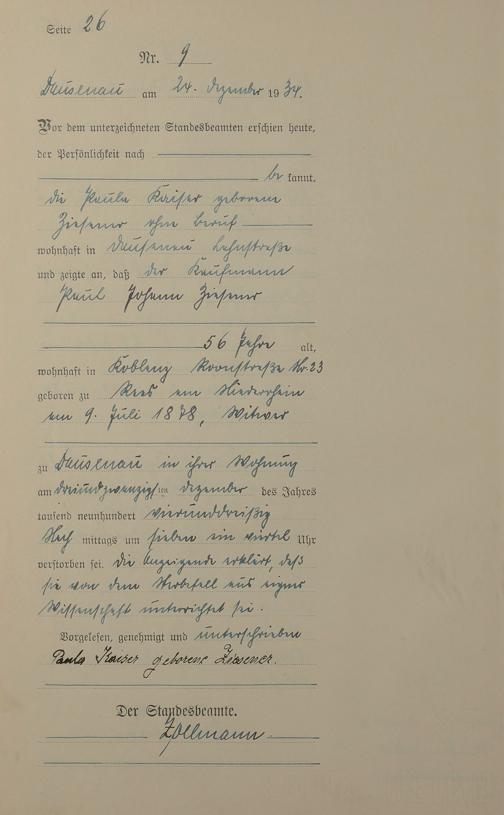 Seite 26
Nr. 9
Dausenau am 24. Dezember 1934.
Vor dem unterzeichneten Standesbeamten erschien heute,
der Persönlichkeit nach
be kannt,
die Paula Kaiser geborene
Ziesener ohne Beruf
wohnhaft in Dausenau Lahnstraße
und zeigte an, daß der Kaufmann
Paul Johann Ziesener
56 Jahre alt,
wohnhaft in Koblenz Roonstraße Nr. 23
geboren zu Rees am Niederrhein
am 9. Juli 1878, Witwer
zu Dausenau in ihrer Wohnung
am dreiundzwanzigsten Dezember des Jahres
tausend neunhundert vierunddreißig
Nach mittags um sieben ein viertel Uhr
verstorben sei. Die Anzeigende erklärt, daß
sie von dem Sterbefall aus eigner
Wissenschaft unterrichtet sei.
Vorgelesen, genehmigt und unterschrieben
Paula Kaiser geborene Ziesener.
Der Standesbeamte.
Zollmann